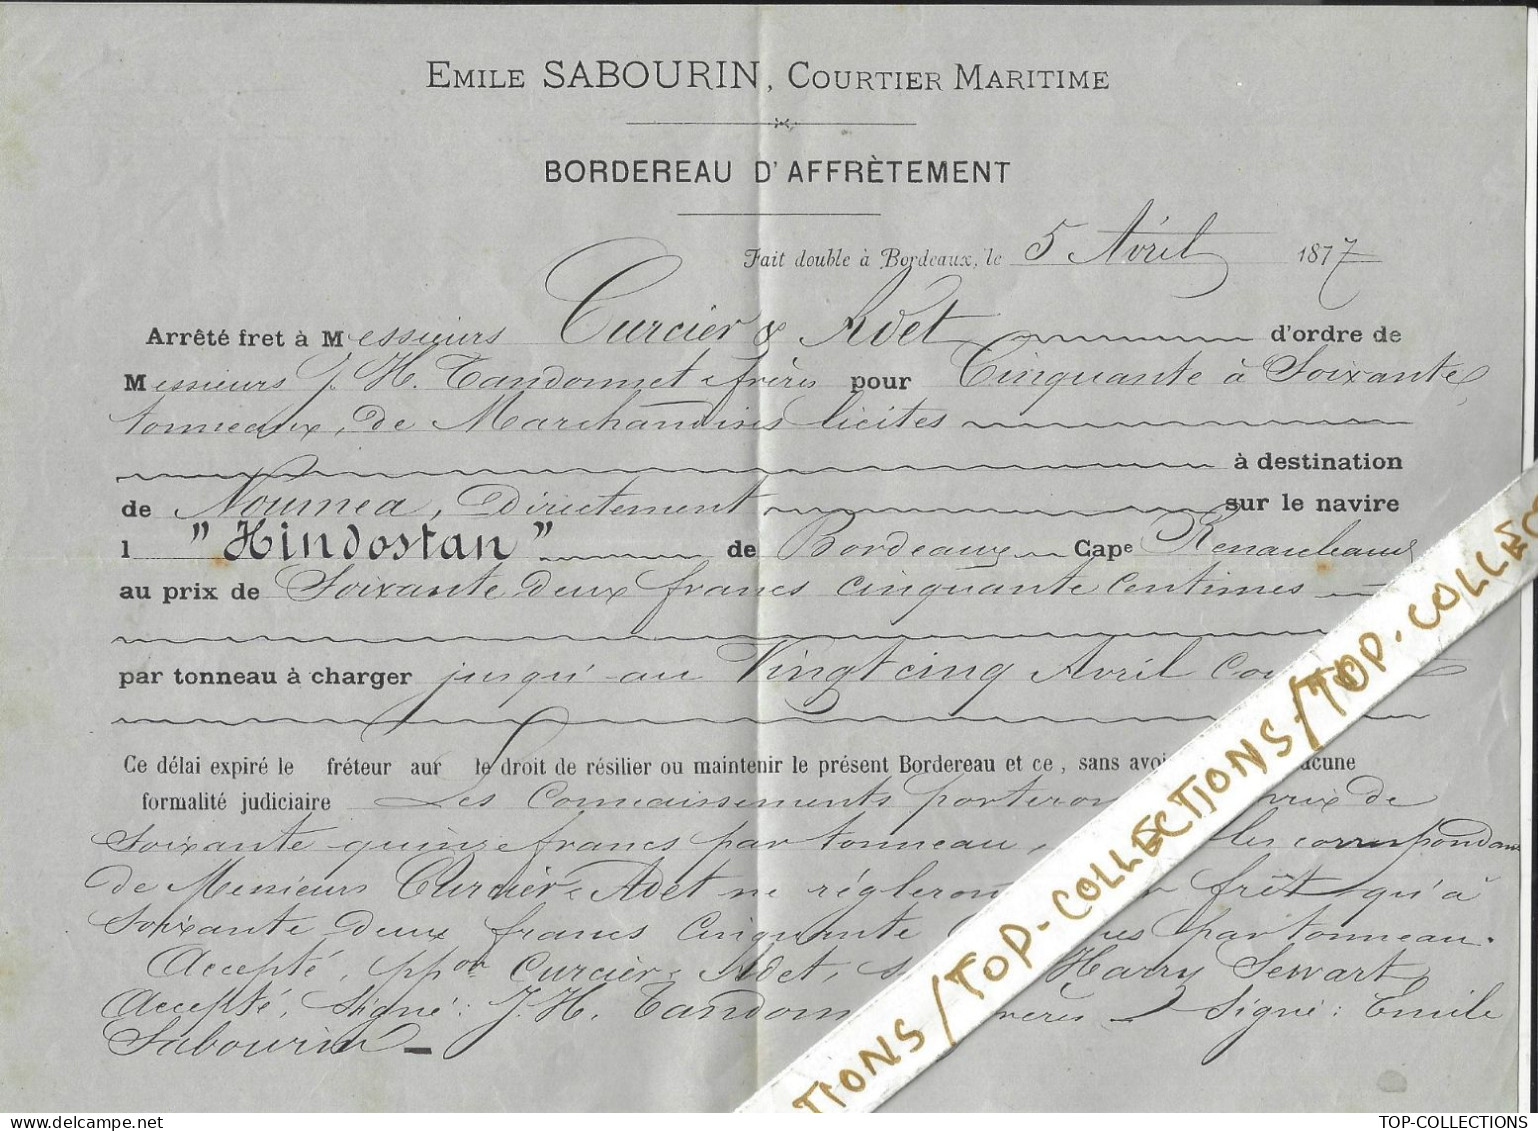 EMILE SABOURIN, COURTIER MARITIME
BORDEREAU D'AFFRÈTEMENT
Fait double à Bordeaux, le 5 Avril 1877
Arrêté fret à Messieurs Curcier & Adet d'ordre de
Messieurs J. H. Tandonnet frères pour Cinquante à Soixante
tonneaux, de Marchandises licites
à destination
de Noumea, Directement sur le navire
l "Hindostan" de Bordeaux Cape
au prix de Soixante deux francs cinquante centimes
par tonneau à charger jusqu'au Vingt cinq Avril
Ce délai expiré le fréteur aur le droit de résilier ou maintenir le présent Bordereau et ce, sans avoi aucune
formalité judiciaire Les Connaissements porteron prix de
Soixante quinze francs par tonneau, les correspondan
de Messieurs Curcier & Adet ne régleron frêt qu'à
Soixante deux francs cinquante par tonneau.
Accepté, ppon Curcier & Adet, Harry Sewart
Accepté, Signé: J. H. Tandon Signé: Emile
Sabourin
TIONS / TOP-COLLECTIONS / TOP-COLLEC
TOP-COLLECTIONS